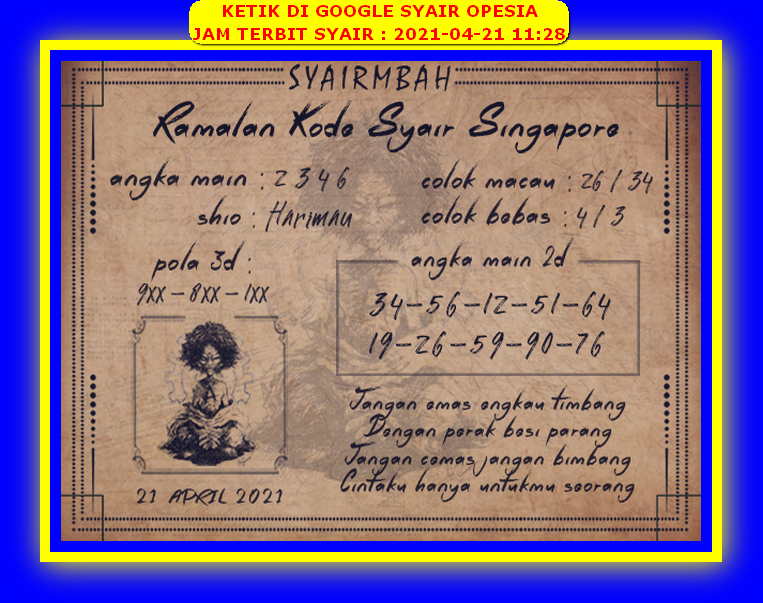 KETIK DI GOOGLE SYAIR OPESIA
JAM TERBIT SYAIR : 2021-04-21 11:28
SYAIRMBAH
Ramalan Kode Syair Singapore
angka main : 2 3 4 6
colok macau : 26 / 34
shio : Harimau
colok bebas : 4 / 3
pola 3d :
9xx - 8xx - 1xx
angka main 2d
34-56-12-51-64
19-26-59-90-76
Jangan emas engkau timbang
Dengan perak besi parang
Jangan cemas jangan bimbang
Cintaku hanya untukmu seorang
21 APRIL 2021